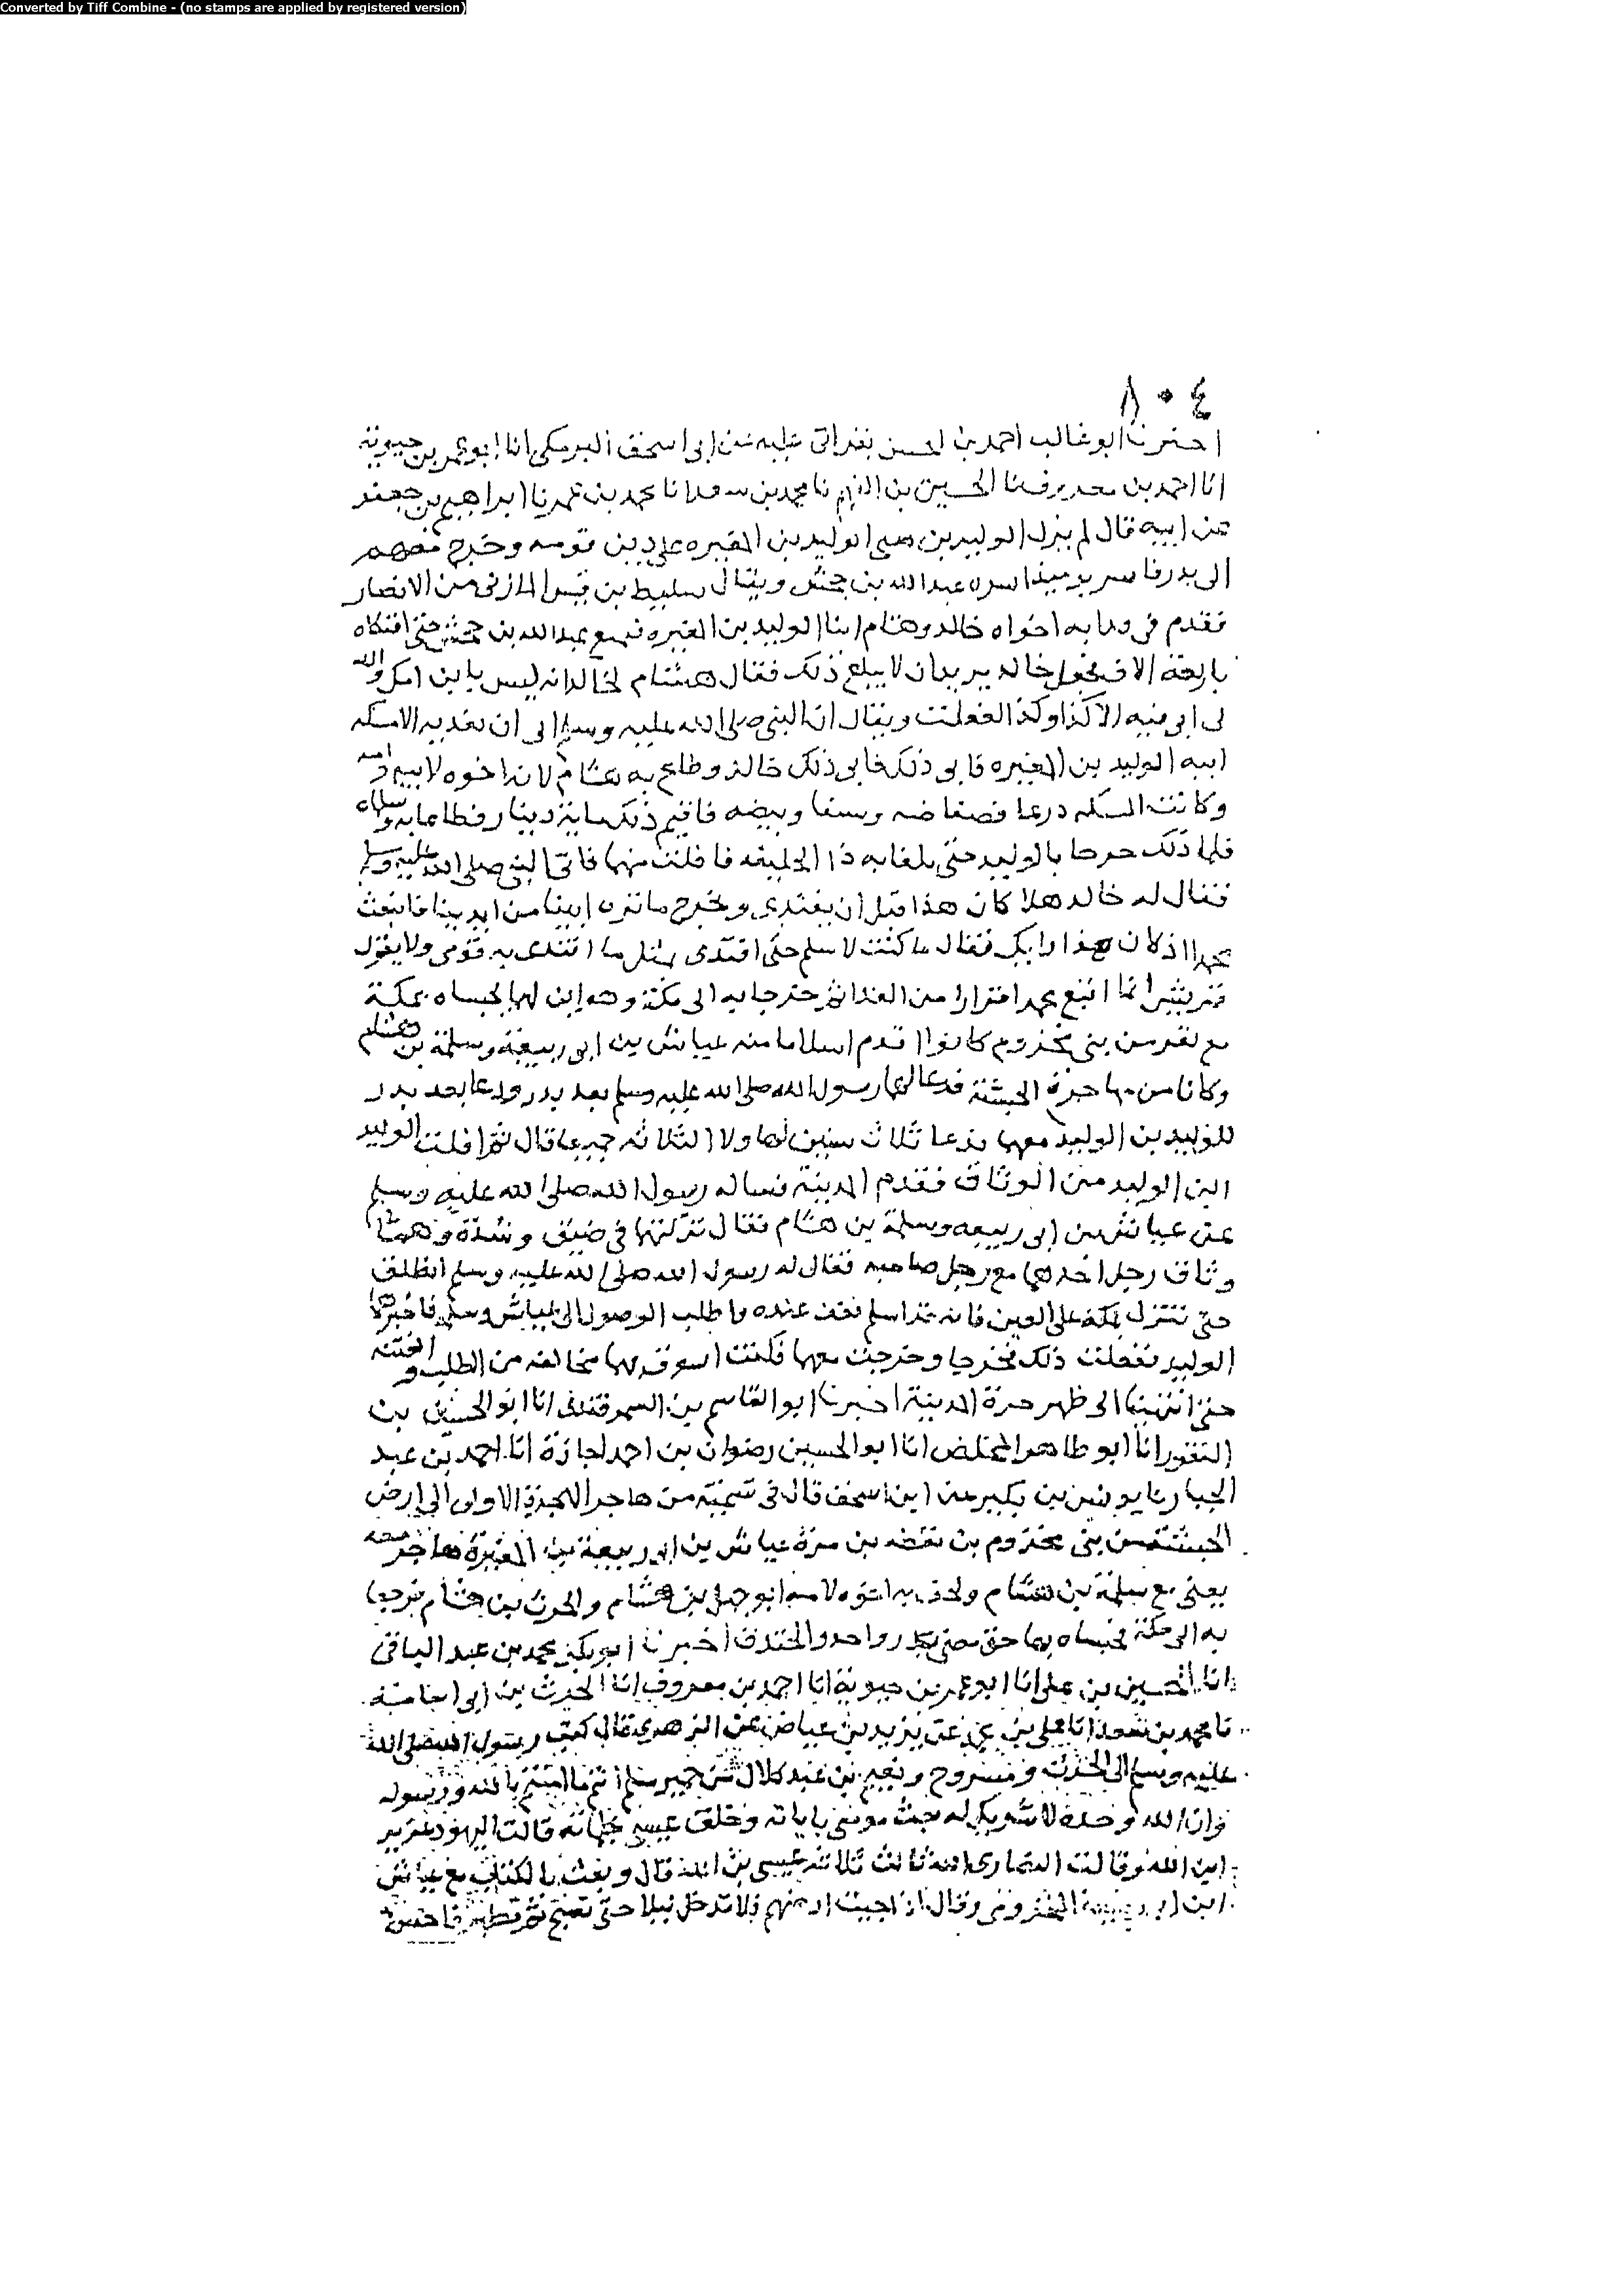 Converted by Tiff Combine - (no stamps are applied by registered version)
٨٠٤
اخبرنا ابو غالب احمد بن الحسن بقراتى عليه عن ابى اسحق البرمكى انا ابو عمر بن حيوية
انا احمد بن معروف نا الحسين بن الفهم نا محمد بن سعد انا محمد بن عمر نا ابراهيم بن جعفر
عن ابيه قال لم يزل الوليد بن الوليد بن المغيره على دين قومه وخرج معهم
الى بدر فاسر يوميذ اسره عبد الله بن جحش ويقال سليط بن قيس المازنى من الانصار
فقدم فى فدايه اخواه خالد وهشام ابنا الوليد بن المغيره فتمنع عبد الله بن جحش حتى افتكاه
باربعة الاف فجعل خالد يريد ان لا يبلغ ذلك فقال هشام لخالد انه ليس بابن امك والله
لو ابى فيه الا كذا وكذا لفعلت ويقال ان النبى صلى الله عليه وسلم ابى ان يفديه الا بشكه
ابيه الوليد بن المغيره فابى ذلك خالد وطاع به هشام لانه اخوه لابيه وامه
وكانت الشكه درعا فضفاضه وسيفا وبيضه فاقيم ذلك ماية دينار فطاعا به وسلماه
فلما ذلك خرجا بالوليد حتى بلغا به ذا الحليفه فافلت منهما فاتى النبى صلى الله عليه وسلم
فقال له خالد هلا كان هذا قبل ان تفتدى وتخرج ماثره ابينا من ايدينا فاتبعت
محمدا اذ كان هذا رايك فقال ما كنت لاسلم حتى افتدى بمثل ما افتدى به قومى ولا يقول
قريش انما اتبع محمد افرارا من الفدا ثم خرجا به الى مكة وهو امن لهما فحبساه بمكة
مع نفر من بنى مخزوم كانوا اقدم اسلاما منه عياش بن ابى ربيعة وسلمة بن هشام
وكانا من مهاجرة الحبشة فدعا لهما رسول الله صلى الله عليه وسلم بعد بدر ودعا بعد بدر
للوليد بن الوليد معهما فدعا ثلاث سنين لهاولا الثلاثه جميعا قال ثم افلت الوليد
ابن الوليد من الوثاق فقدم المدينة فساله رسول الله صلى الله عليه وسلم
عن عياش بن ابى ربيعه وسلمة بن هشام فقال تركتهما فى ضيق وشدة وهما فى
وثاق رجل احدهما مع رجل صاحبه فقال له رسول الله صلى الله عليه وسلم انطلق
حتى تنزل بمكة على القين فانه قد اسلم فتغيب عنده واطلب الوصول الى عياش وسلمة فاخبرهما
الوليد ففعلت ذلك فخرجا وخرجت معهما فكنت اسوق بهما مخافه من الطلب والفتنه
حتى انتهينا الى ظهر حرة المدينة اخبرنا ابو القاسم بن السمرقندى انا ابو الحسين بن
النقور انا ابو طاهر المخلص انا ابو الحسين رضوان بن احمد اجازة انا احمد بن عبد
الجبار نا يونس بن بكير عن ابن اسحق قال فى تسمية من هاجر الهجرة الاولى الى ارض
الحبشة من بنى مخزوم بن يقظه بن مرة عياش بن ابى ربيعة بن المغيرة هاجر معه
يعنى مع سلمة بن هشام ولحق به اخوه لامه ابو جهل بن هشام والحرث بن هشام فرجعا
به الى مكة فحبساه بها حتى مضى بدر واحد والخندق اخبرنا ابو بكر محمد بن عبد الباقى
انا الحسن بن على انا ابو عمر بن حيوية انا احمد بن معروف انا الحرث بن ابى اسامة
نا محمد بن سعد انا على بن محمد عن يزيد بن عياض عن الزهرى قال كتب رسول الله صلى الله
عليه وسلم الى الحرث ومسروح ونعيم بن عبد كلال من حمير سلم انتم ما امنتم بالله ورسوله
وان الله وحده لا شريك له بعث موسى باياته وخلق عيسى بكلماته قالت اليهود عزير
ابن الله وقالت النصارى الله ثالث ثلاثة عيسى بن الله قال وبعث بالكتاب مع عياش
ابن ابى ربيعة المخزومى وقال اذا جيت ارضهم فلا تدخل ليلا حتى تصبح ثم تطهر فاحسن